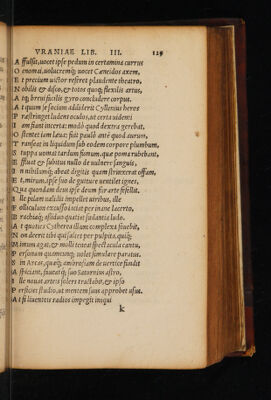 VRANIAE LIB. III. 129
A ffulsit, uocet ipse pedum in certamina currus
O enomai, uolucremq; uocet Caneidos axem,
E t precium uictor referet plaudente theatro,
N obilis & disco, & totos quoq; flexilis artus,
A tq; breui facilis gyro concludere corpus.
A t quem se iactim addiderit Cyllenius heros
P rastringet ludens oculos, ut certa uideri
I am fiant incerta: modò quod dextra gerebat,
O stentet iam læua: fiat paulò ante quod aurum,
T ranseat in liquidum sub eodem corpore plumbum,
S tuppa uomat tardum fumum, quæ poma rubebant,
E ffluat & subitus nullo de uulnere sanguis,
I n nihilumq; abeat digitis quam strinxerat offam,
E t, mirum, ipse suo de gutture uentilet ignes,
Q ue quondam deus ipse deum fur arte fefellit.
I lle pilam ualidis impellet uiribus, ille
F olliculum excusso iaciet per inane lacerto,
B rachiaq; assiduo quatiet sudantia ludo.
A t quoties Cytherea illum complexa fouebit,
N on deerit tibi qui saltet per pulpita, quiq;
M imum agat, & molli teneat spectacula cantu,
P ersonam quamcunq; uolet simulare paratus.
S in Arcas, quæq; ambrosiam de uertice fundit
A spiciant, fueatq; suo Saturnius astro,
I lle nouat artes solers tractabit, & ipso
P erficiet studio, ut mentem suus approbet usus.
A t si liuentis radios impegit iniqui
k